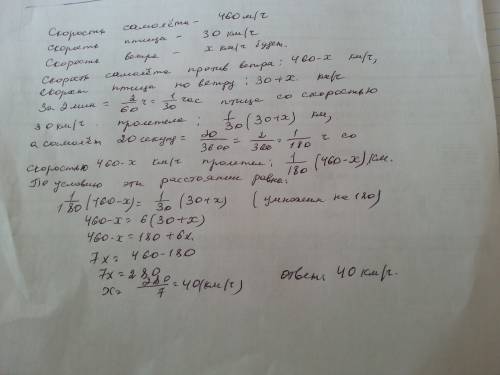 Скорость самолёта – 460 м/ч
Скорость птица – 30 км/ч
Скорость ветра – x км/ч будет.
Скорость самолёта против ветра: 460-x км/ч,
скорост птица по ветру; 30+x км/ч
За 2 мин = 2/60 ч = 1/30 час птица со скоростью
30 км/ч пролетела; 1/30 (30+x) км,
а самолёт 20 секунд = 20/3600 = 2/360 = 1/180 ч со
скоростью 460-x км/ч пролетел; 1/180 (460-x) км.
По условию эти расстояние равна:
1/180 (460-x) = 1/30 (30+x) (умножим на 180)
460-x = 6(30+x)
460-x = 180+6x
7x = 460-180
7x = 280
x = 280/7 = 40 (км/ч) ответ: 40 км/ч.